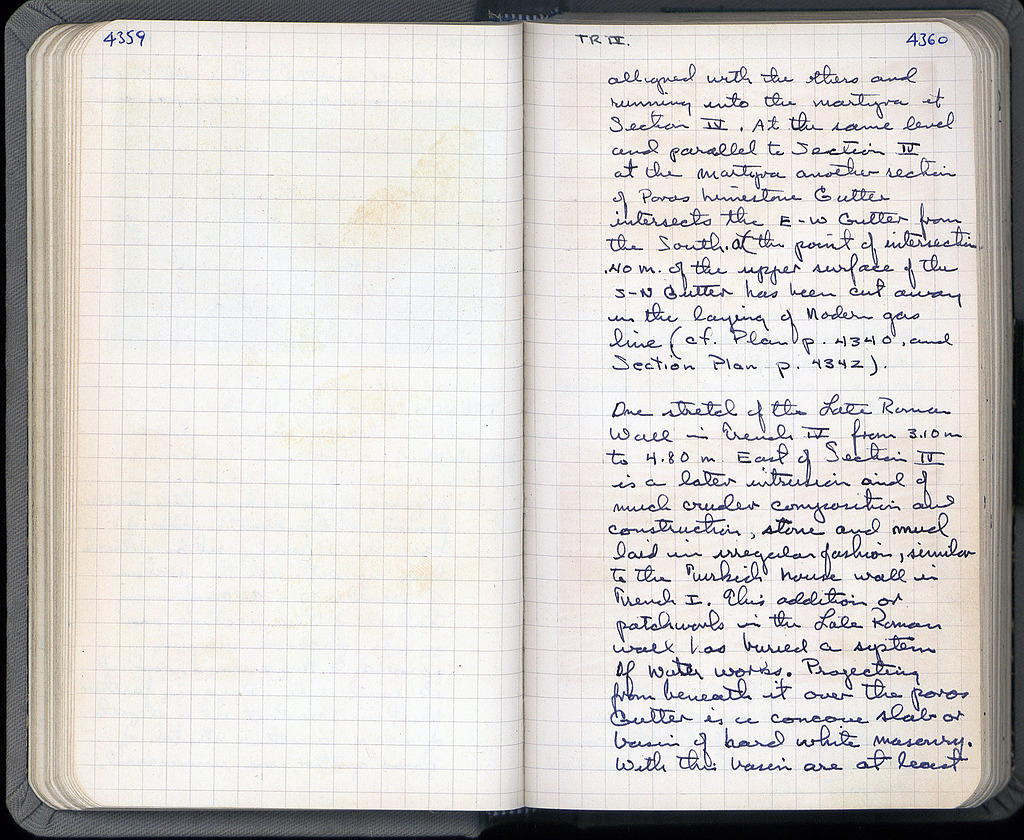 4359
TR IV.
4360
alligned with the others and
running into the martyra at
Section IV. At the same level
and parallel to Section IV
at the martyra another section
of Poros Limestone Gutter
intersects the E-W Gutter from
the South. At the point of intersection
.40 m. of the upper surface of the
S-N Gutter has been cut away
in the laying of Modern gas
line (cf. Plan p. 4340, and
Section Plan p. 4342).
One stretch of the Late Roman
Wall in Trench IV from 3.10 m
to 4.80 m East of Section IV
is a later intrusion and of
much cruder composition and
construction, stone and mud
laid in irregular fashion, similar
to the Turkish house wall in
Trench I. This addition or
patchwork in the Late Roman
wall has buried a system
of water works. Projecting
from beneath it over the poros
Gutter is a concave slab or
basin of hard white masonry.
With this basin are at least